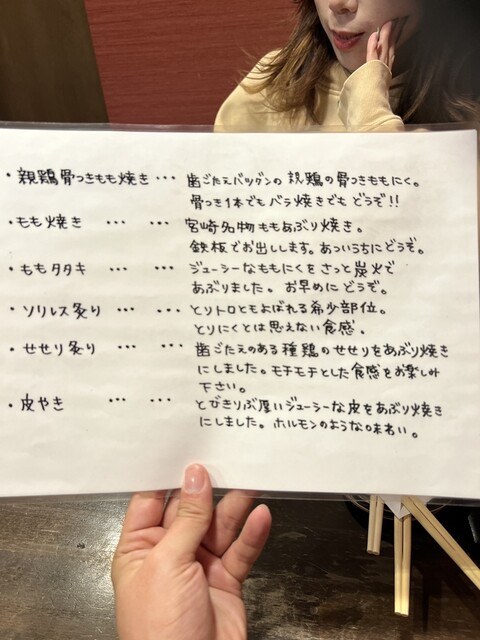 ・親鶏骨つきもも焼き・・・ 歯ごたえバツグンの親鶏の骨つきももにく。
骨つき1本でもバラ焼きでもどうぞ!!
・もも焼き ・・・ ・・・ 宮崎名物ももあぶり焼き。
鉄板でお出しします。あついうちにどうぞ。
・ももタタキ ・・・ ・・・ ジューシーなももにくをさっと炭火で
あぶりました。お早めにどうぞ。
・ソリレス炙り ・・・ ・・・ とりトロともよばれる希少部位。
とりにくとは思えない食感。
・せせり炙り ・・・ ・・・ 歯ごたえのある種鶏のせせりをあぶり焼き
にしました。モチモチとした食感をお楽しみ
下さい。
・皮やき ・・・ ・・・ とびきりぶ厚いジューシーな皮をあぶり焼き
にしました。ホルモンのような味わい。